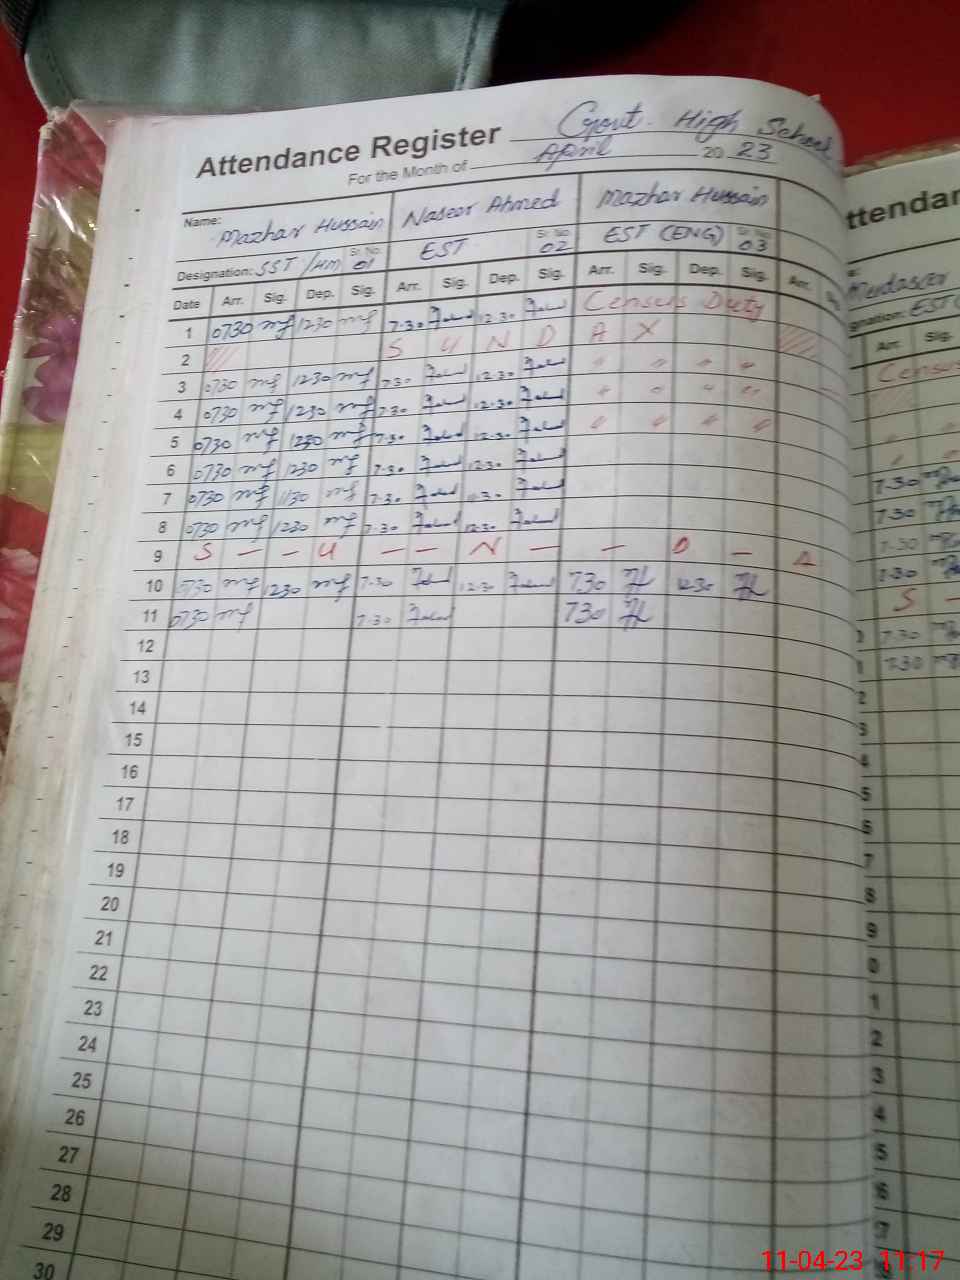 Attendance Register Govt. High School
For the Month of April 20 23
Name: Mazhar Hussain Naseer Ahmed Mazhar Hussain
Designation: SST /HM Sr. No. 01 EST Sr. No. 02 EST (ENG) Sr. No. 03
Date Arr. Sig. Dep. Sig. Arr. Sig. Dep. Sig. Arr. Sig. Dep. Sig. Arr.
1 0730 1230 7.30 12.30 Census Duty
2 S U N D A Y
3 0730 1230 7.30 12.30 " " " "
4 0730 1230 7.30 12.30 " " " "
5 0730 1230 7.30 12.30 " " " "
6 0730 1230 7.30 12.30
7 0730 1130 7.30 11.30
8 0730 1230 7.30 12.30
9 S – – U – – N – – D – A
10 0730 1230 7.30 12.30 730 1230
11 0730 7.30 730
12
13
14
15
16
17
18
19
20
21
22
23
24
25
26
27
28
29
30
Attendan
Arr. Sig.
7.30
7.30
7.30
7.30
S –
7.30
7.30
11-04-23 11:17